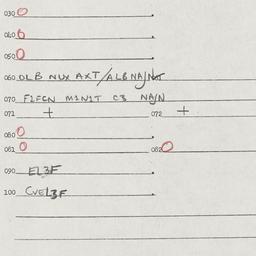 030 O
040 O
050 O
060 DLB NUX AXT/ALBNA/NXT
070 F2FCN M1N1T C3 NA/N
071 + 072 +
080 O
081 O 082 O
090 EL3F
100 CVEL3F